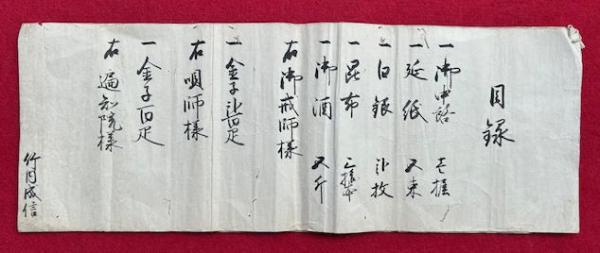 目録
一 御中啓 壱握
一 延紙 五束
一 白銀 弐枚
一 昆布 三拾本
一 御酒 五斤
右御戒師様
一 金子弐百疋
右唄師様
一 金子百疋
右遍知院様
竹内成信